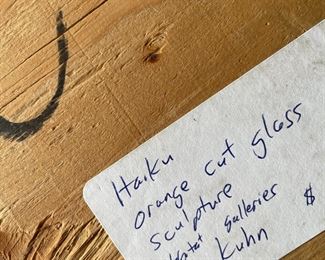 Haiku
orange cut glass
sculpture
galleries $
Kuhn